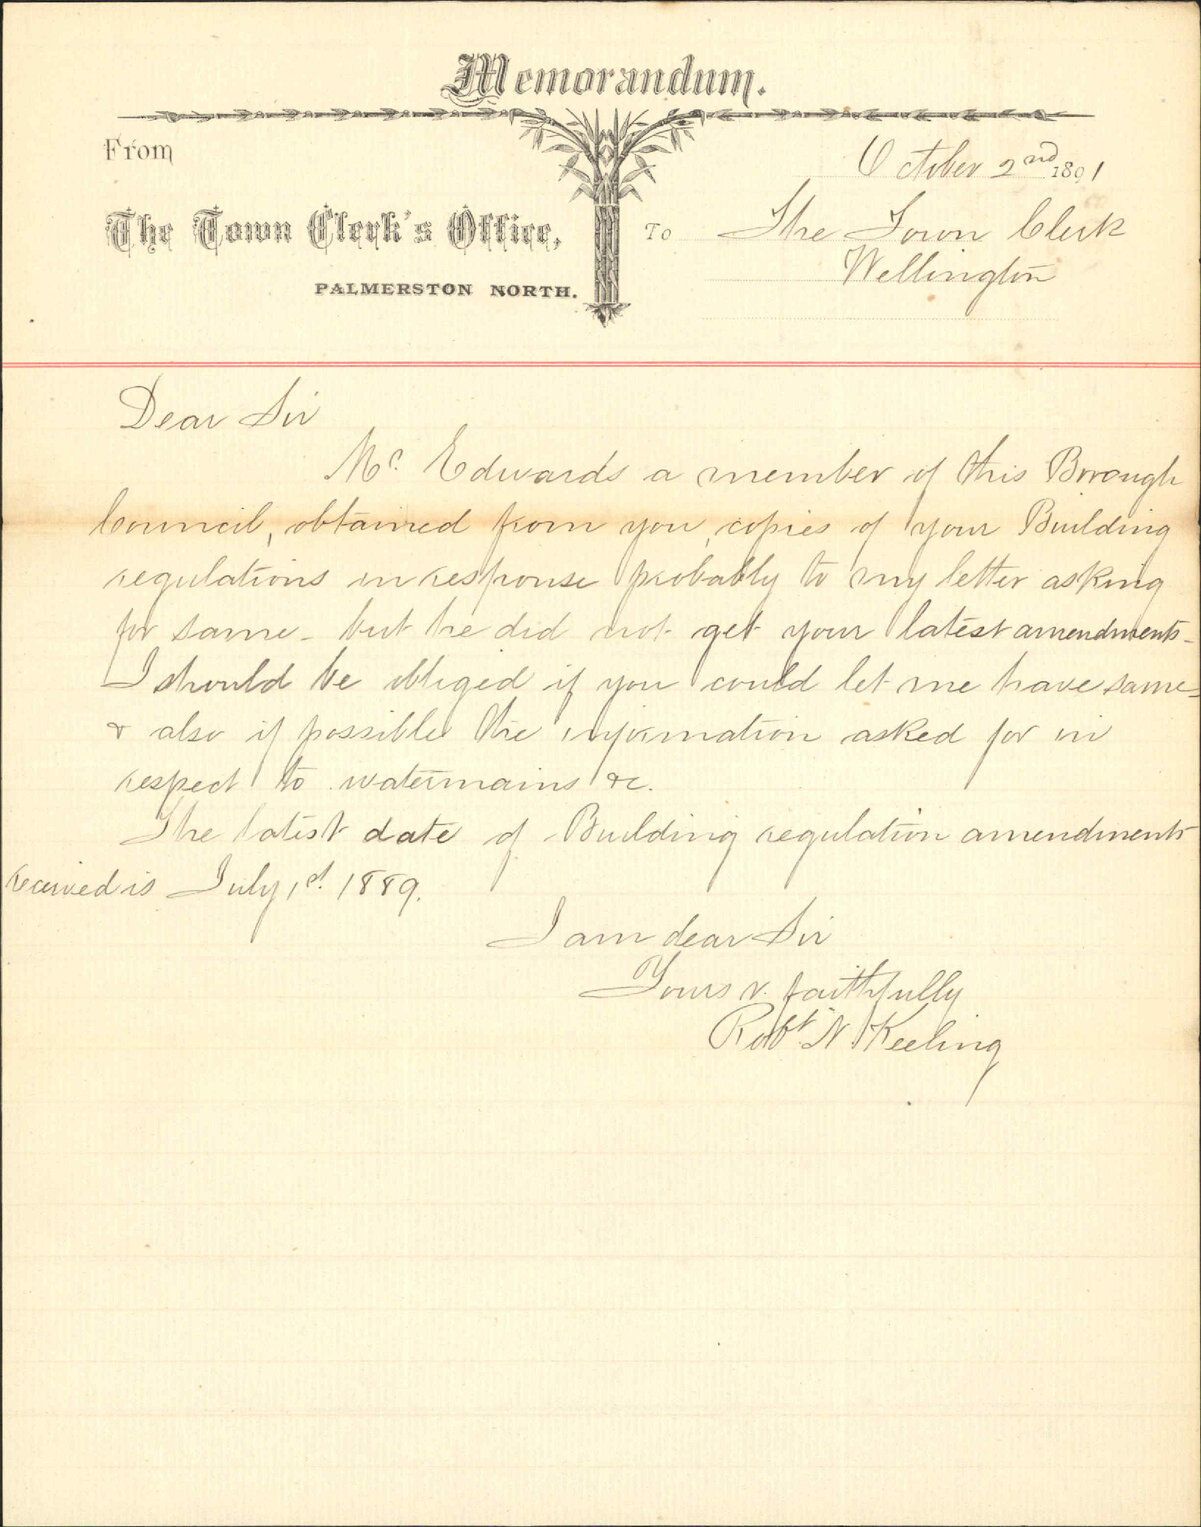 Memorandum.
From
October 2nd 1891
The Town Clerk's Office,
To The Town Clerk
Wellington
PALMERSTON NORTH.
Dear Sir
Mr. Edwards a member of this Borough
Council, obtained from you, copies of your Building
regulations in response probably to my letter asking
for same - but he did not get your latest amendments -
I should be obliged if you could let me have same -
& also if possible the information asked for in
respect to watermains &c.
The latest date of Building regulation amendments
received is July 1st. 1889.
I am dear Sir
Yours v. faithfully
Robt. N. Keeling